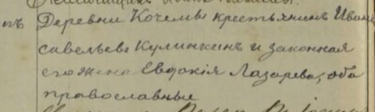 въ Деревни Кочемы крестьянинъ Иванъ
Савельевъ Кулинкинъ и законная
его жена Евдокія Лазарева, оба
православные